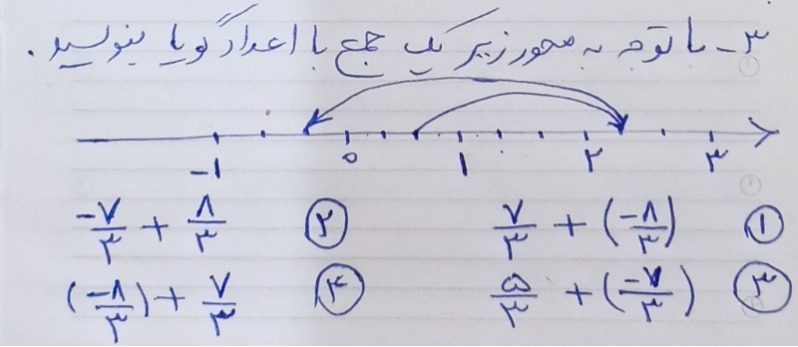 ۳- با توجه به محور زیر یک جمع با اعداد گویا بنویسید.
-۱ ۰ ۱ ۲ ۳
① ۷/۳ + (-۸/۳) ② -۷/۳ + ۸/۳
③ ۵/۳ + (-۷/۳) ④ (-۸/۳) + ۷/۳